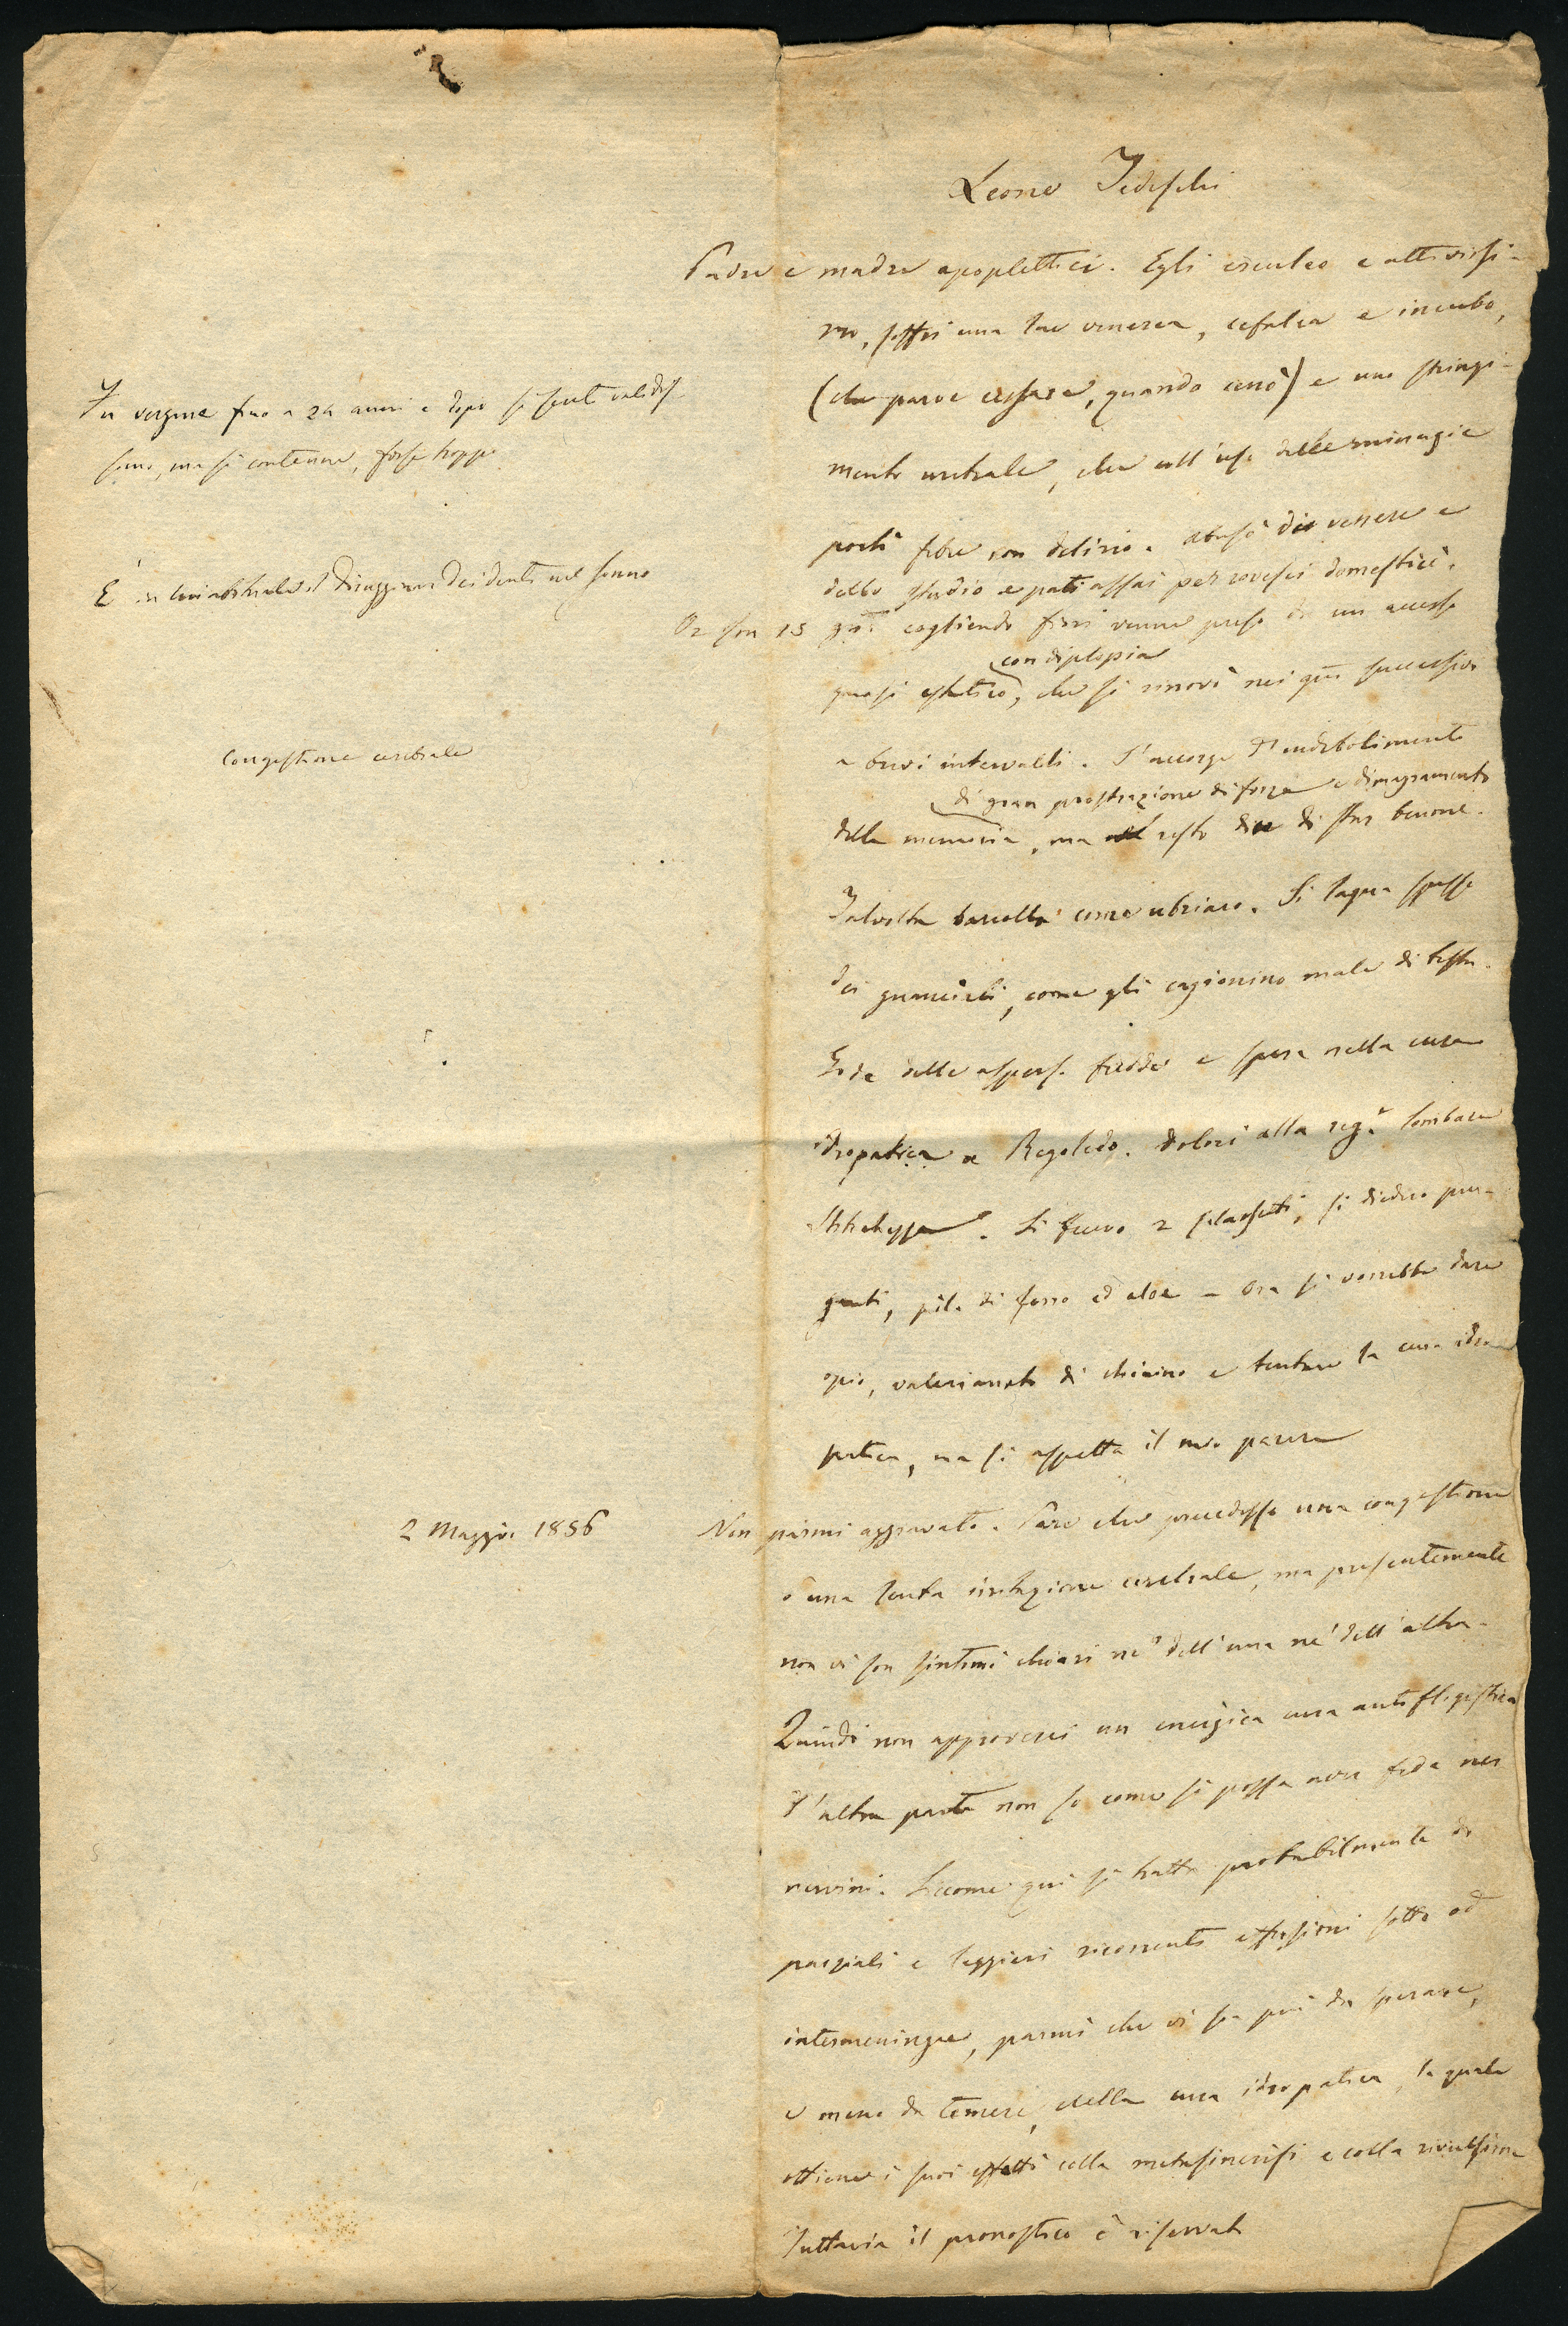 Leone Tedeschi
Padre e madre apoplettici. Egli erculeo e attivissi-
mo, soffrì una lue venerea, cefalea e incubo,
(che parve cessare, quando cenò) e uno stringi-
Fu vergine fino a 24 anni e dopo si sentì validis
simo, ma si contenne, forse troppo
mento uretrale, che coll'uso delle minugie
portò febre con delirio. Abusò di venere e
È in lui abituale il digrignare dei denti nel sonno
dello studio e patì assai per rovesci domestici.
Or son 15 gni cogliendo fiori venne preso da un accesso
con diplopia
quasi estatico, che si rinovò nei gni successivi
Congestione cerebrale
a brevi intervalli. S'accorge d'indebolimento
di gran prostrazione di forze e dimagramento
della memoria, ma nel resto dice di star benone.
Talvolta barcolla come ubriaco. Si lagna spesso
dei guanciali, come gli cagionino male di testa.
Gode delle aspers. fredde e spera nella cura
idropatica a Regoledo. Dolori alla reg.e lombare
Stitichezza. Si fecero 2 salassetti, si diedero pur-
ganti, pil. di ferro ed aloe – Ora si vorrebbe dare
opio, valerianato di chinino e tentare la cura idro
patica, ma si aspetta il mio parere
2 Maggio 1856
Non parmi aggravato. Pare che precedesse una congestione
o una lenta irritazione cerebrale, ma presentemente
non vi son sintomi chiari nè dell'una nè dell'altra.
Quindi non approverei un energica cura antiflogistica
D'altra parte non so come si possa aver fede nei
nervini. Siccome qui si tratta probabilmente di
parziali e leggieri ricorrenti effusioni sotto od
intermeningee, parmi che vi sia più da sperare,
e meno da temere, della cura idropatica, la quale
ottiene i suoi effetti colla metasincrisi e colla rivulsione
Tuttavia il pronostico è riservato